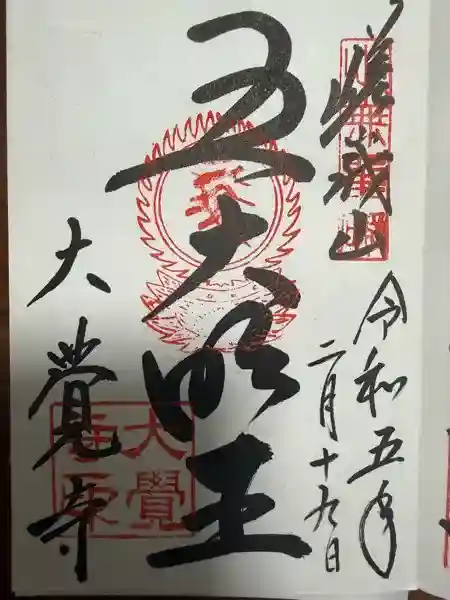 嵯峨山
令和五年
二月十九日
五大明王
大覺寺
大覺
寺印